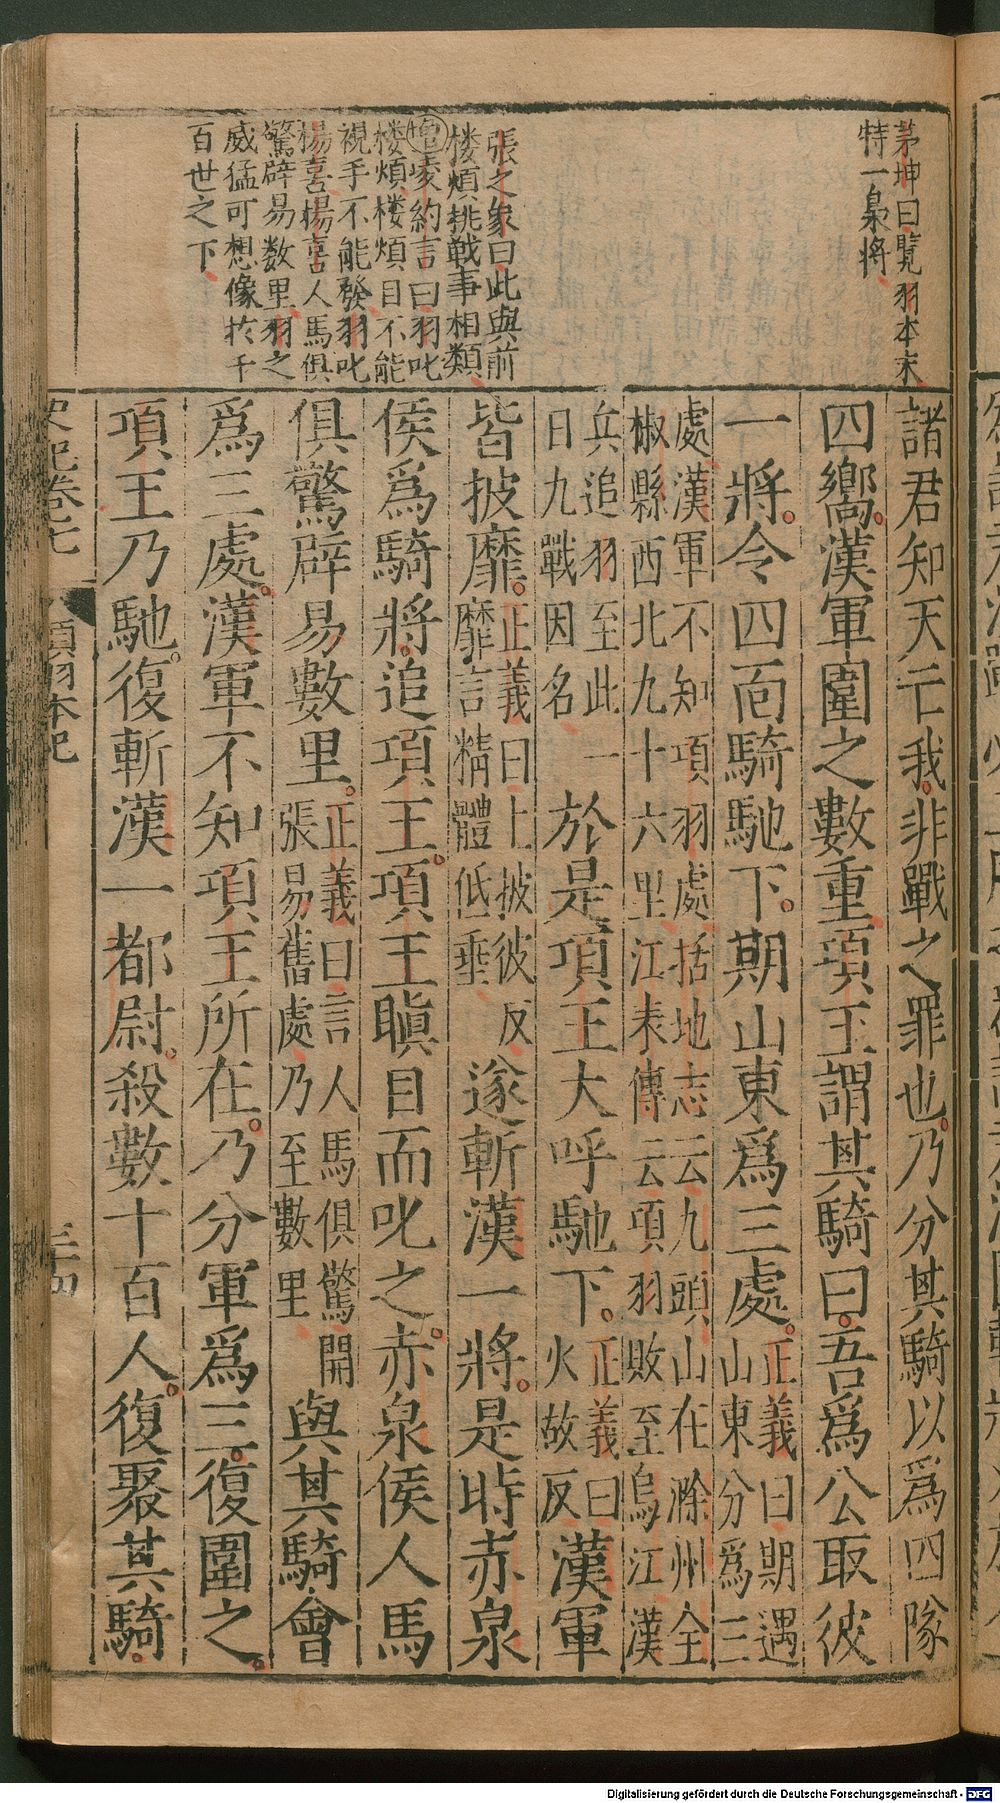 茅坤曰覽羽本末
特一梟將
張之象曰此與前
楼煩挑戦事相類
增凌約言曰羽叱
楼煩楼煩目不能
視手不能發羽叱
楊喜楊喜人馬俱
驚辟易数里羽之
威猛可想像於千
百世之下
諸君知天亡我。非戰之罪也。乃分其騎以爲四隊
四嚮。漢軍圍之數重。項王謂其騎曰。吾爲公取彼
一將。令四面騎馳下。期山東爲三處。正義曰期遇
山東分爲三
處漢軍不知項羽處括地志云九頭山在滁州全
椒縣西北九十六里江表傳云項羽敗至烏江漢
兵追羽至此一
日九戰因名
於是項王大呼馳下。正義曰
火故反
漢軍
皆披靡。正義曰上披彼反
靡言精體低垂
遂斬漢一將。是時赤泉
侯爲騎將。追項王。項王瞋目而叱之。赤泉侯人馬
俱驚辟易數里。正義曰言人馬俱驚開
張易舊處乃至數里
與其騎會
爲三處。漢軍不知項王所在。乃分軍爲三。復圍之。
項王乃馳。復斬漢一都尉。殺數十百人。復聚其騎。
史記卷七
項羽本紀
三十四
Digitalisierung gefördert durch die Deutsche Forschungsgemeinschaft - DFG